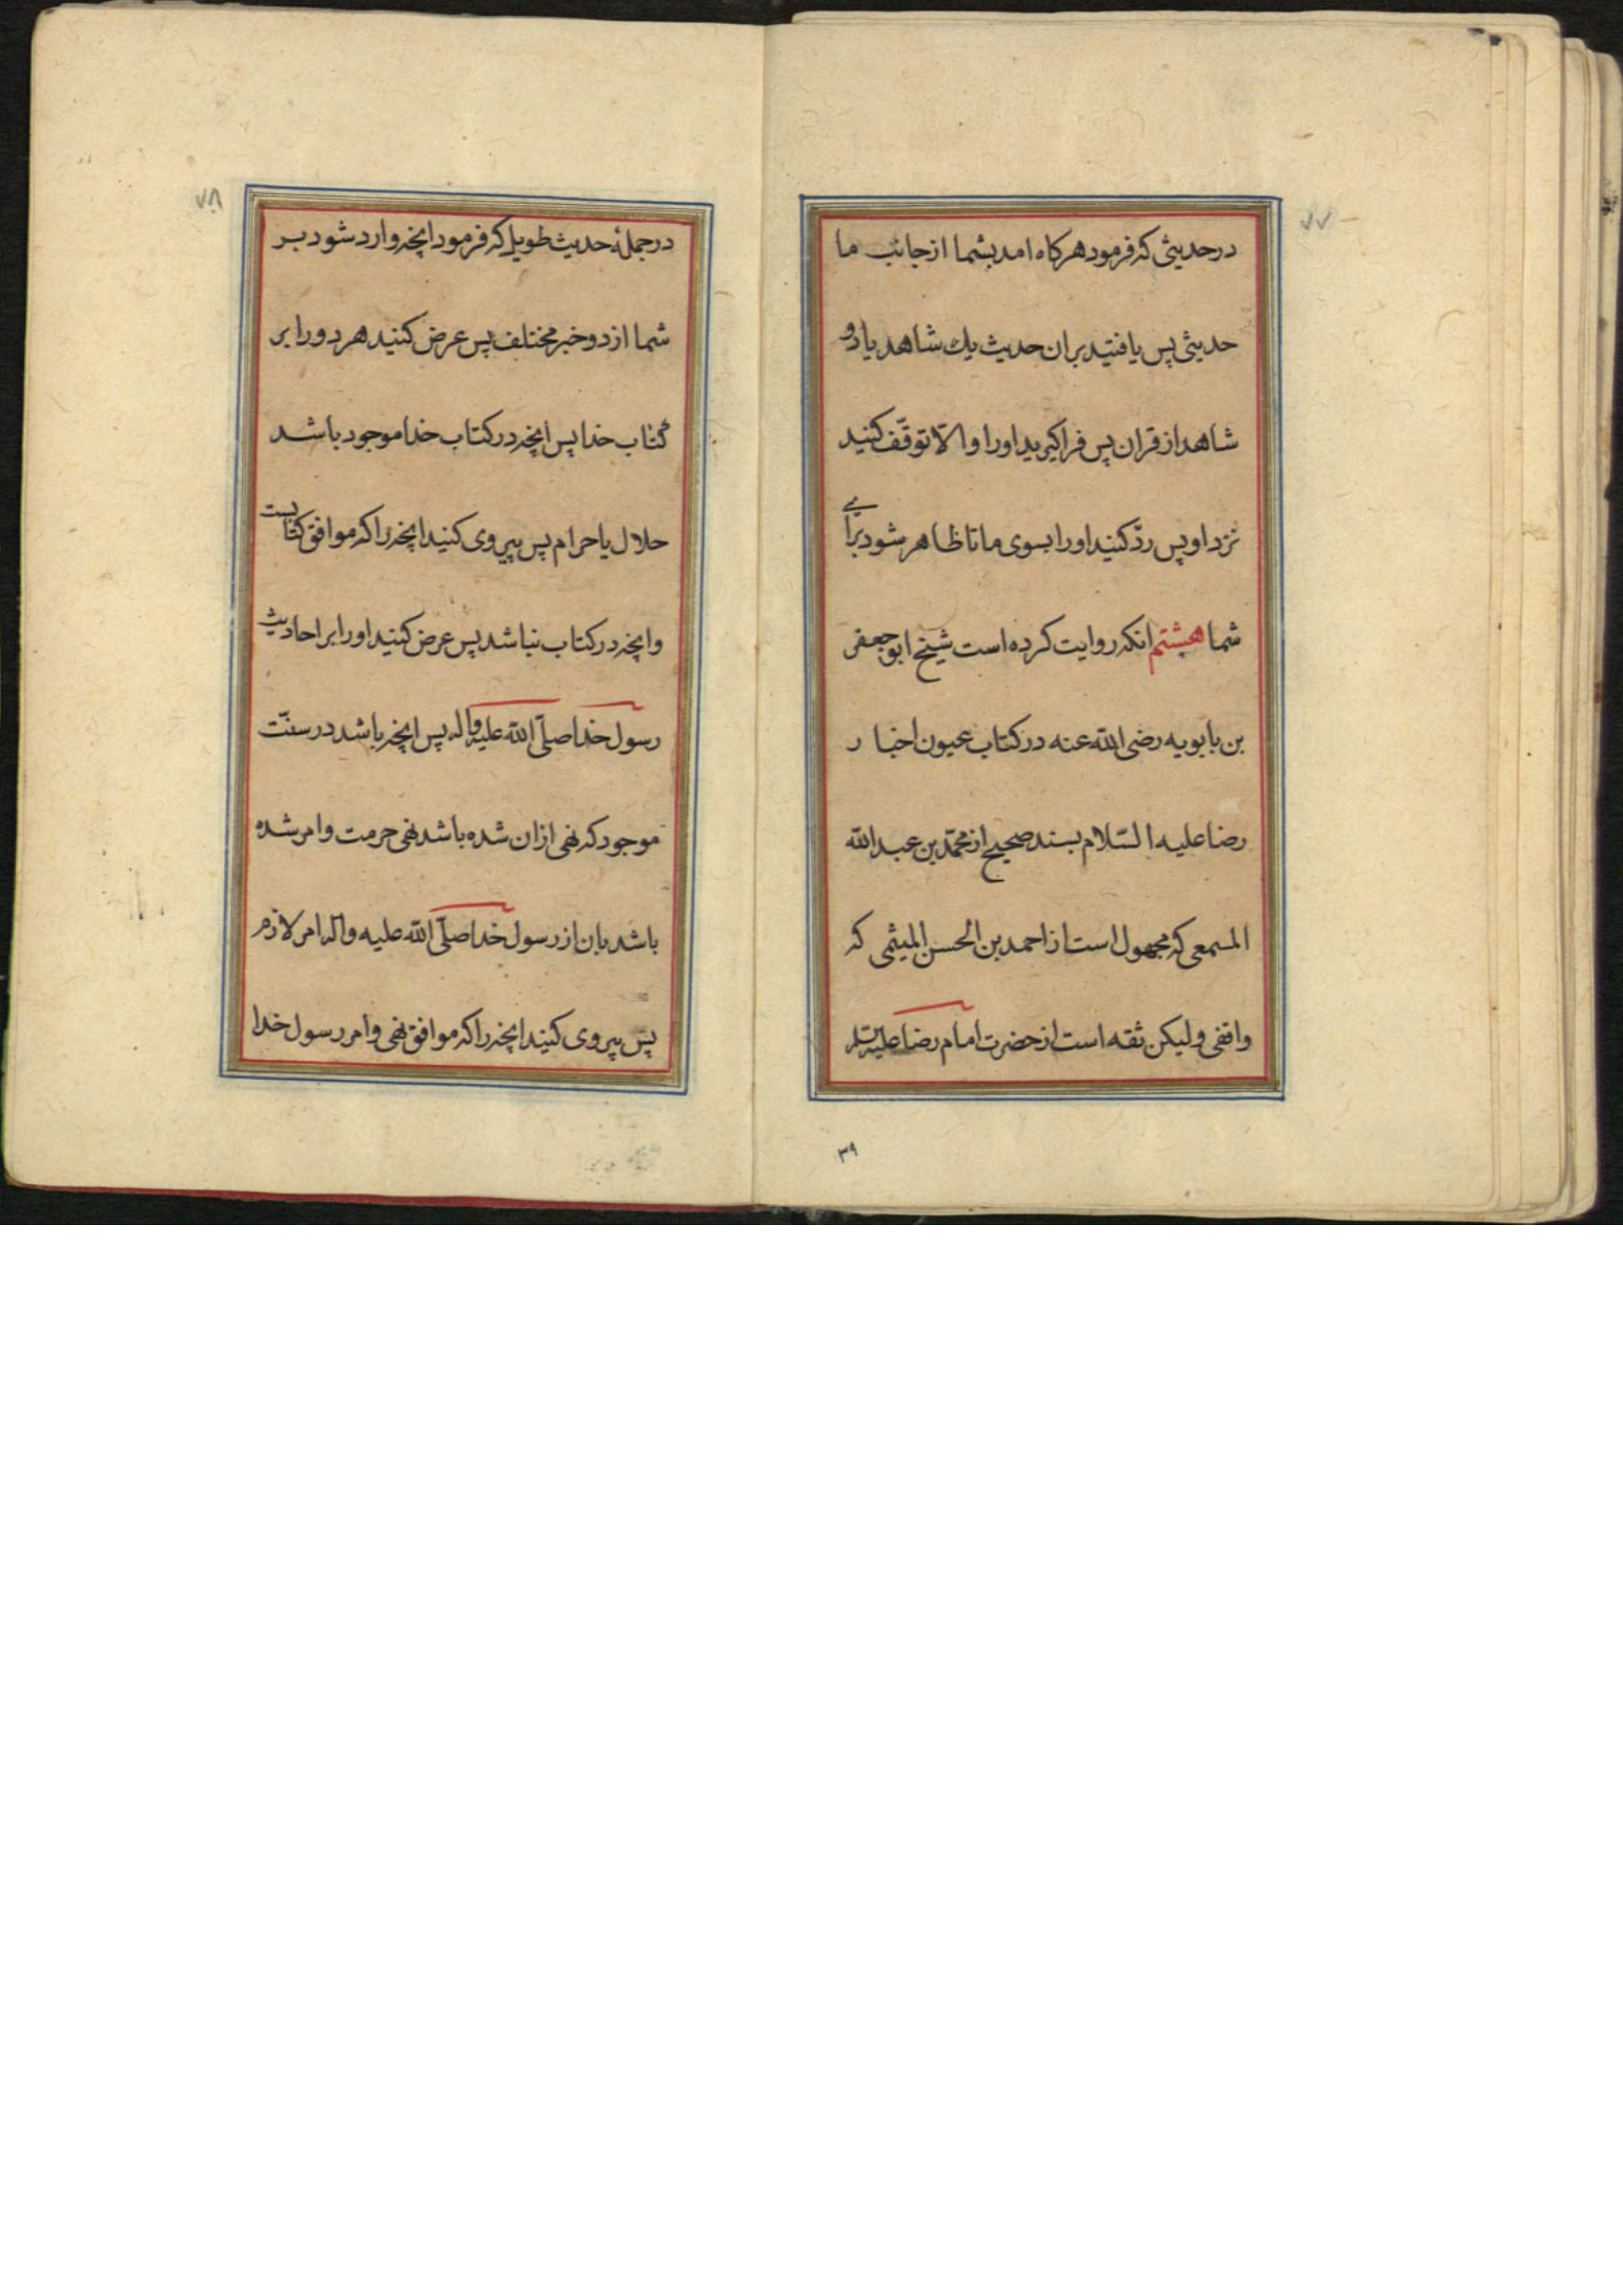 ۷۷
در حدیثی که فرمود هرکاه امد بشما از جانب ما
حدیثی پس یافتید بران حدیث یك شاهد یا دو
شاهد از قران پس فراکیرید اورا والّا توقّف کنید
نزد او پس ردّ کنید اورا بسوی ما تا ظاهر شود برای
شما هشتم انکه روایت کرده است شیخ ابو جعفر
بن بابویه رضی الله عنه در کتاب عیون اخبار
رضا علیه السّلام بسند صحیح از محمّد بن عبد الله
المسمعی که مجهول است از احمد بن الحسن المیثمی که
واقفی ولیکن ثقه است از حضرت امام رضا علیه السلم
۳۹
۷۸
در جملهٔ حدیث طویل که فرمود انچه وارد شود بر
شما از دو خبر مختلف پس عرض کنید هر دو را بر
کتاب خدا پس انچه در کتاب خدا موجود باشد
حلال یا حرام پس پیروی کنید انچه را که موافق کتابست
وانچه در کتاب نباشد پس عرض کنید اورا بر احادیث
رسول خدا صلّی الله علیه واله پس انچه باشد در سنّت
موجود که نهی ازان شده باشد نهی حرمت وامر شده
باشد بان از رسول خدا صلّی الله علیه واله امر لازم
پس پیروی کنید انچه را که موافق نهی وامر رسول خدا